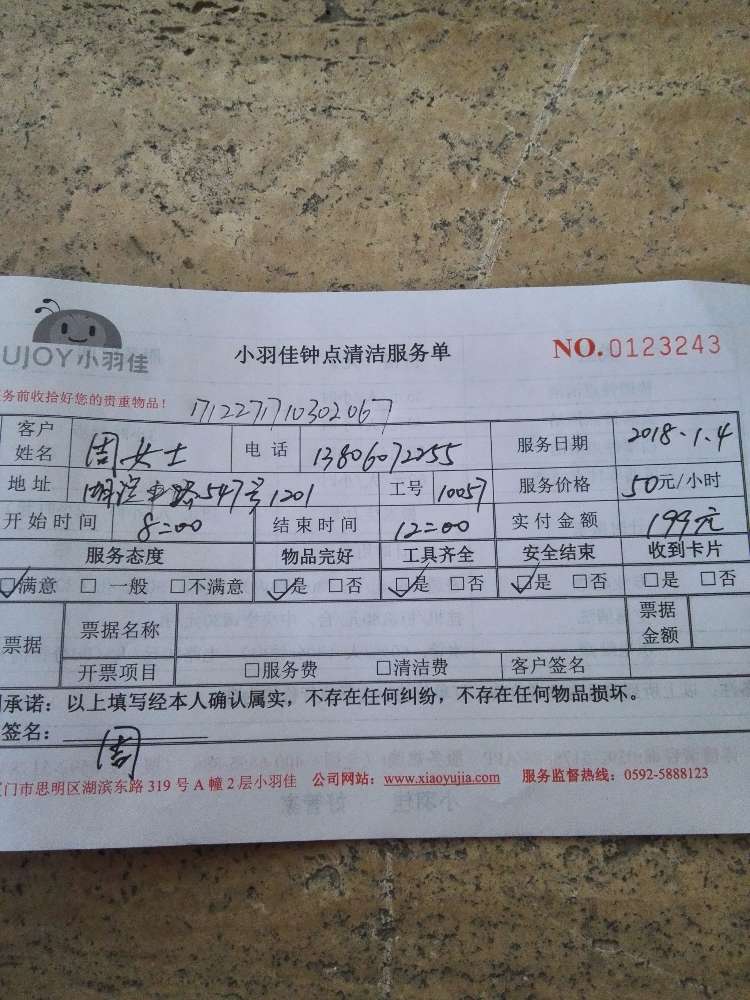 UJOY小羽佳
小羽佳钟点清洁服务单
NO.0123243
务前收拾好您的贵重物品!
1712271710302067
客户姓名 周女士 电话 13806072255 服务日期 2018.1.4
地址 547号1201 工号 10057 服务价格 50元/小时
开始时间 8:00 结束时间 12:00 实付金额 199元
服务态度 物品完好 工具齐全 安全结束 收到卡片
☑满意 □一般 □不满意 ☑是 □否 ☑是 □否 ☑是 □否 □是 □否
票据 票据名称 票据金额
开票项目 □服务费 □清洁费 客户签名
承诺：以上填写经本人确认属实，不存在任何纠纷，不存在任何物品损坏。
签名： 周
门市思明区湖滨东路 319 号 A 幢 2 层小羽佳 公司网站：www.xiaoyujia.com 服务监督热线：0592-5888123